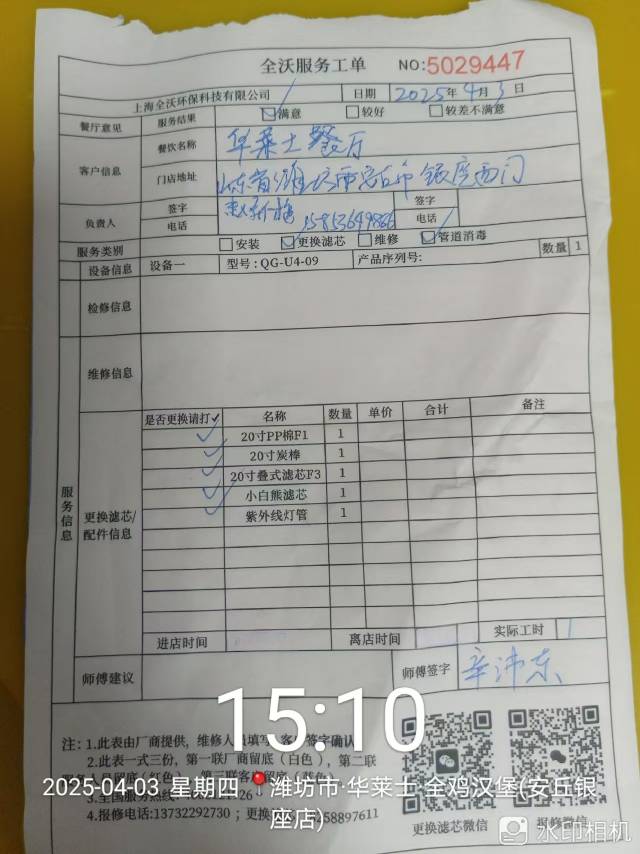 全沃服务工单 NO:5029447
上海全沃环保科技有限公司 日期 2025年4月3日
餐厅意见 服务结果 ☑满意 □较好 □较差不满意
客户信息 餐饮名称 华莱士餐厅
门店地址 山东省潍坊市安丘市银座西门
负责人 签字 签字
电话 电话
服务类别 □安装 ☑更换滤芯 □维修 ☑管道消毒
设备信息 设备一 型号:QG-U4-09 产品序列号: 数量 1
检修信息
维修信息
服务信息
更换滤芯/配件信息
是否更换请打✓ 名称 数量 单价 合计 备注
✓ 20寸PP棉F1 1
✓ 20寸炭棒 1
✓ 20寸叠式滤芯F3 1
✓ 小白熊滤芯 1
✓ 紫外线灯管 1
进店时间 离店时间 实际工时 1
师傅建议 师傅签字 辛沛东
15:10
注:1.此表由厂商提供,维修人员填写,客户签字确认
2.此表一式三份,第一联厂商留底(白色),第二联
2025-04-03 星期四 潍坊市·华莱士·全鸡汉堡(安丘银座店)
3.全国服务热线
4.报修电话:13732292730;更换
更换滤芯微信 报修微信
水印相机